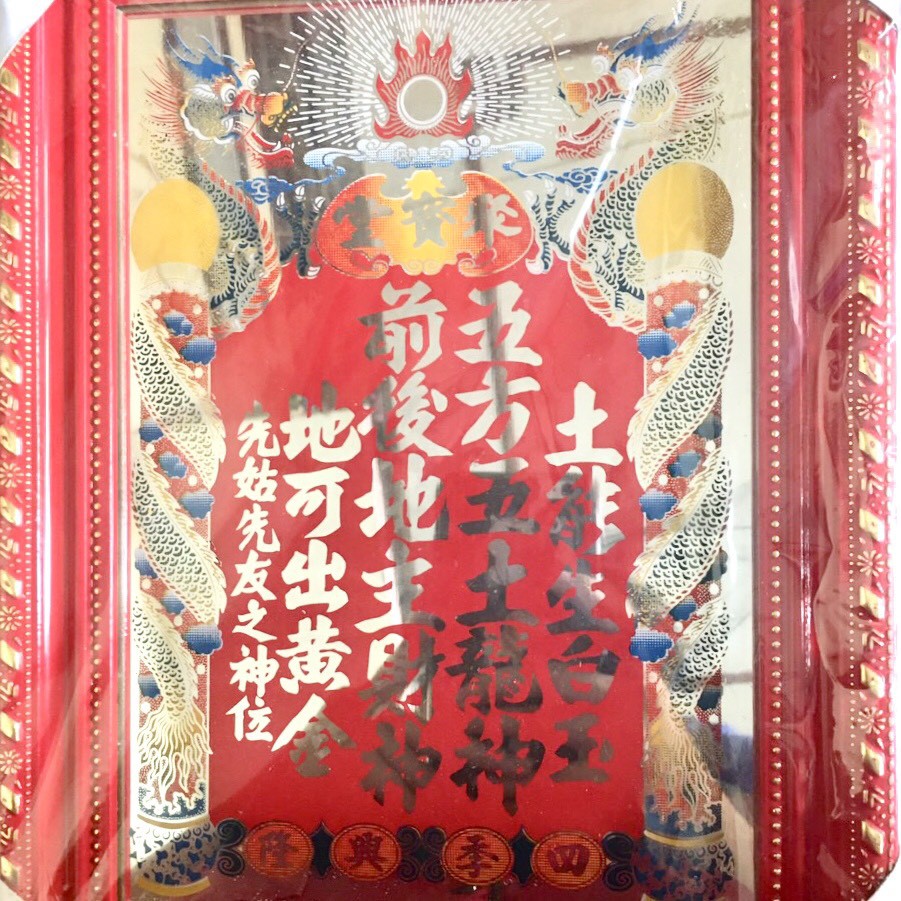 聚寶堂
土能生白玉
五方五土龍神
前後地主財神
地可出黄金
先姑先友之神位
四季興隆